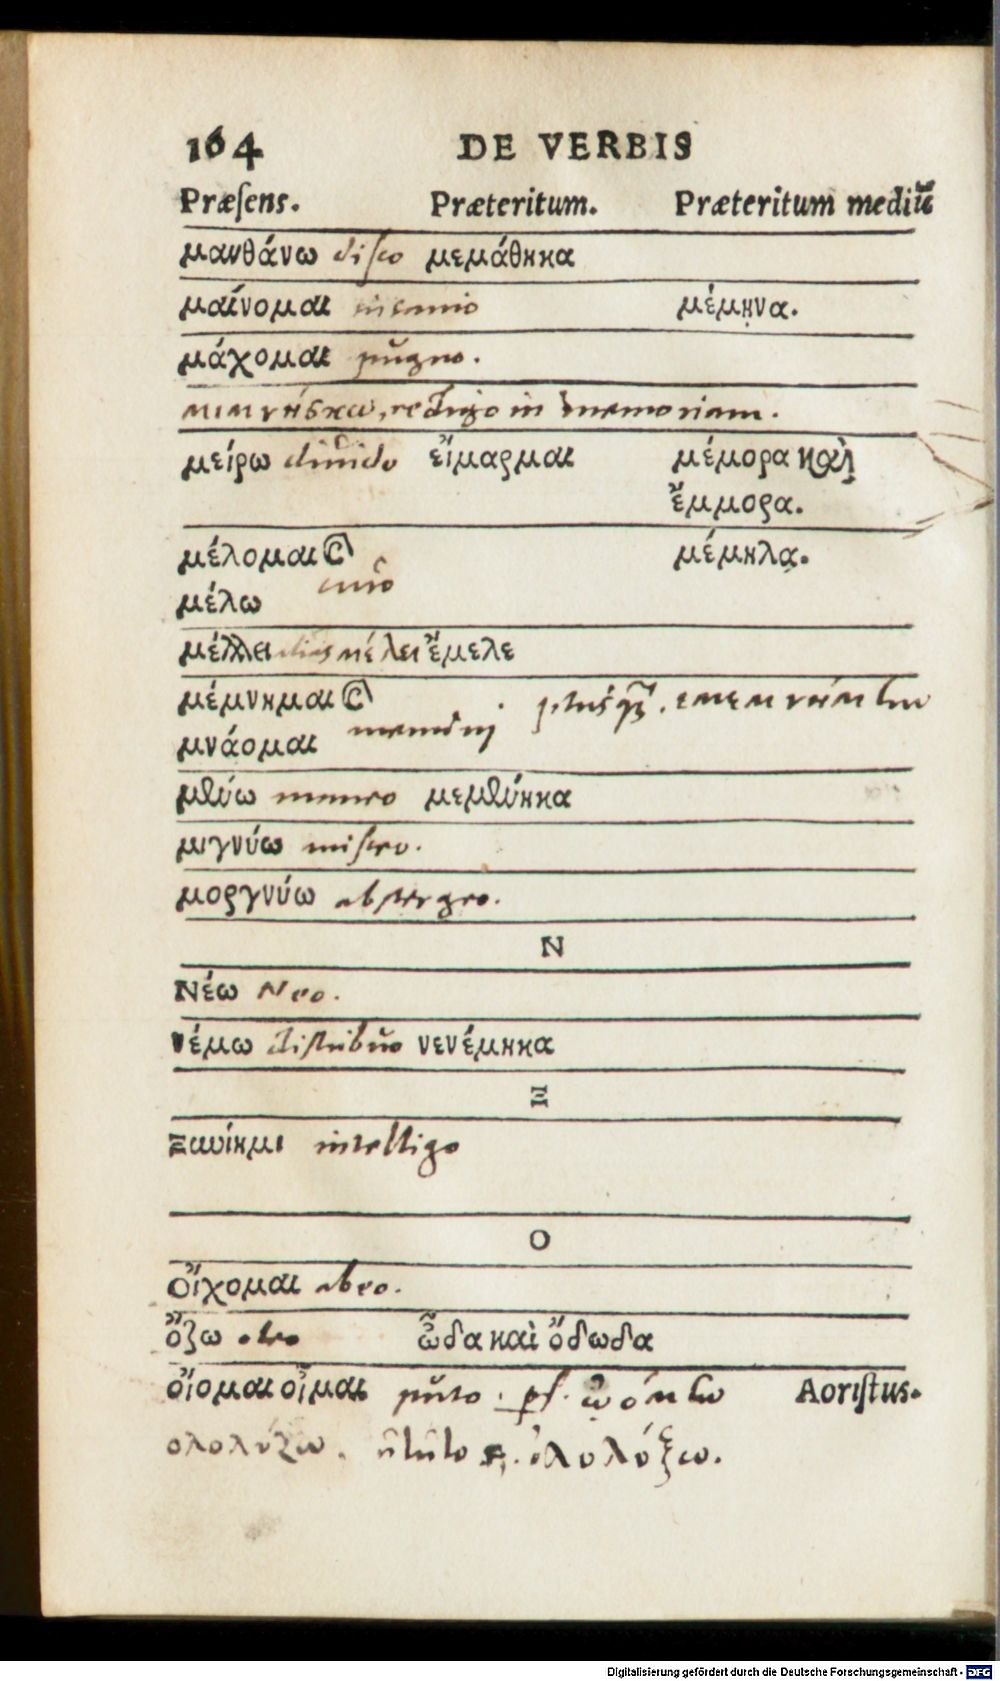 164 DE VERBIS
Præſens. Præteritum. Præteritum mediũ
μανθάνω diſco μεμάθηκα
μαίνομαι insanio μέμηνα.
μάχομαι pŭgno.
μιμνήσκω, redigo in memoriam.
μείρω diŭido εἵμαρμαι μέμορα καὶ
ἔμμορα.
μέλομαι ϗ μέμηλα.
μέλω curo
μέλλει μέλει ἔμελε
μέμνημαι ϗ plusq̃ꝫ. ἐμεμνήμην
μνάομαι memini
μθύω μεμθύηκα
μιγνύω miſceo.
μοργνύω abstergeo.
N
Νέω Neo.
νέμω distribŭo νενέμηκα
Ξ
Ξυνίημι intelligo
O
οἴχομαι abeo.
ὄζω oleo ὦδα καὶ ὄδωδα
οἴομαι οἶμαι pŭto. pf. ᾠόμην Aoriſtus.
ολολύζω. ŭlŭlo ὀλολύξω.
Digitalisierung gefördert durch die Deutsche Forschungsgemeinschaft - DFG